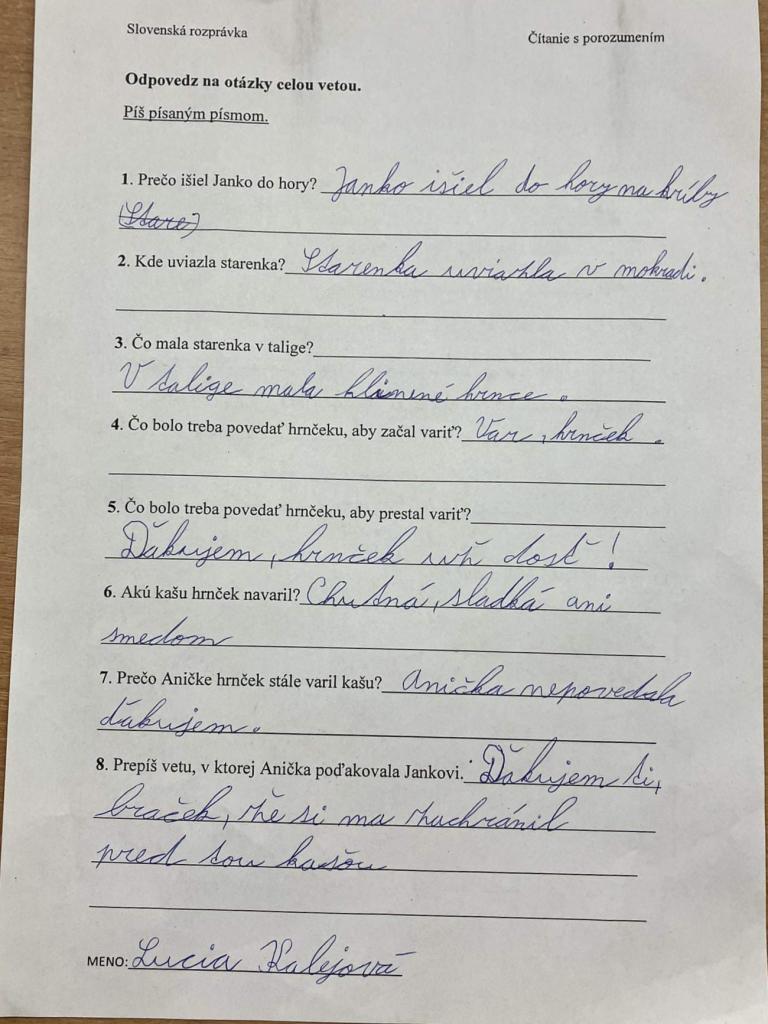 Slovenská rozprávka Čítanie s porozumením
Odpovedz na otázky celou vetou.
Píš písaným písmom.
1. Prečo išiel Janko do hory? Janko išiel do hory na hríby
(Stare)
2. Kde uviazla starenka? Starenka uviazla v mokradi.
3. Čo mala starenka v talige?
V talige mala hlinené hrnce.
4. Čo bolo treba povedať hrnčeku, aby začal variť? Var, hrnček.
5. Čo bolo treba povedať hrnčeku, aby prestal variť?
Ďakujem, hrnček už dosť!
6. Akú kašu hrnček navaril? Chutná, sladká ani
smedom
7. Prečo Aničke hrnček stále varil kašu? Anička nepovedala
ďakujem.
8. Prepíš vetu, v ktorej Anička poďakovala Jankovi. Ďakujem ti,
braček, že si ma zachránil
pred tou kašou
MENO: Lucia Kalejová